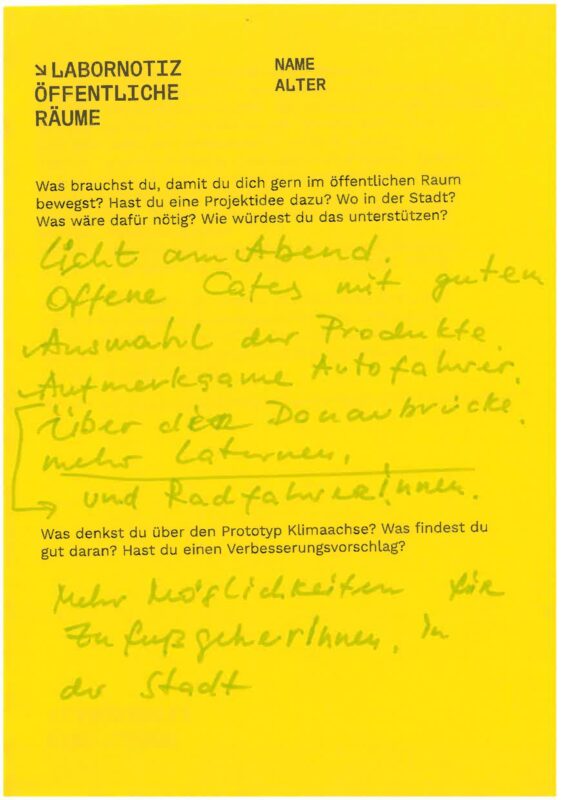 ↘ LABORNOTIZ
ÖFFENTLICHE
RÄUME
NAME
ALTER
Was brauchst du, damit du dich gern im öffentlichen Raum
bewegst? Hast du eine Projektidee dazu? Wo in der Stadt?
Was wäre dafür nötig? Wie würdest du das unterstützen?
Licht am Abend.
Offene Cafes mit guten
Auswahl der Produkte.
Aufmerksame Autofahrer.
Über die Donaubrücke.
mehr Laternen,
und RadfahrerInnen.
Was denkst du über den Prototyp Klimaachse? Was findest du
gut daran? Hast du einen Verbesserungsvorschlag?
Mehr Möglichkeiten für
ZufußgeherInnen, in
der Stadt